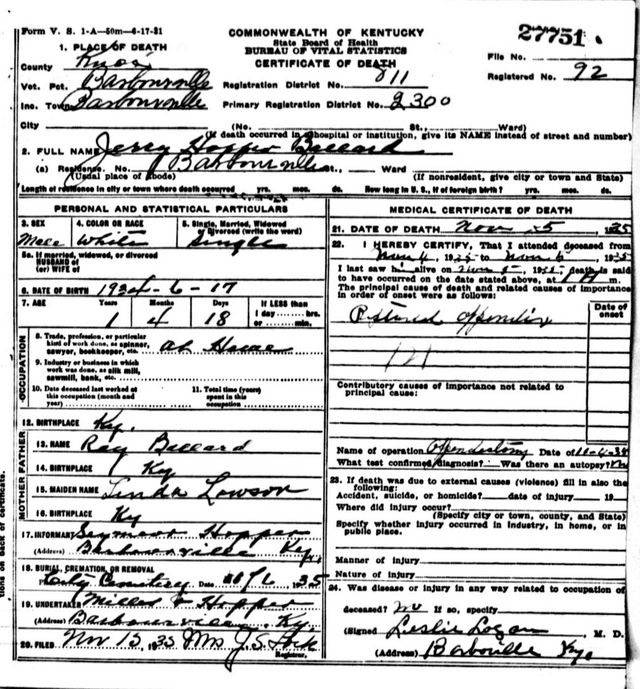 Form V. S. 1-A—50m—6-17-31
COMMONWEALTH OF KENTUCKY
State Board of Health
BUREAU OF VITAL STATISTICS
CERTIFICATE OF DEATH
27751
File No.
Registered No. 92
1. PLACE OF DEATH
County Knox
Vot. Pct. Barbourville
Registration District No. 811
Inc. Town Barbourville
Primary Registration District No. 2300
City (No. St., Ward)
(If death occurred in a hospital or institution, give its NAME instead of street and number)
2. FULL NAME Jerry Hopper Ballard
(a) Residence. No. Barbourville St., Ward
(Usual place of abode) (If nonresident, give city or town and State)
Length of residence in city or town where death occurred yrs. mos. ds. How long in U. S., if of foreign birth? yrs. mos. ds.
PERSONAL AND STATISTICAL PARTICULARS
3. SEX Male
4. COLOR OR RACE White
5. Single, Married, Widowed or Divorced (write the word) Single
5a. If married, widowed, or divorced
HUSBAND of
(or) WIFE of
6. DATE OF BIRTH 1934-6-17
7. AGE Years Months Days If LESS than
1 4 18 1 day hrs.
or min.
OCCUPATION
8. Trade, profession, or particular
kind of work done, as spinner,
sawyer, bookkeeper, etc. At Home
9. Industry or business in which
work was done, as silk mill,
sawmill, bank, etc.
10. Date deceased last worked at
this occupation (month and
year)
11. Total time (years)
spent in this
occupation
12. BIRTHPLACE Ky.
MOTHER FATHER
13. NAME Ray Ballard
14. BIRTHPLACE Ky
15. MAIDEN NAME Linda Lawson
16. BIRTHPLACE Ky
17. INFORMANT Seymour Hopper
(Address) Barbourville Ky.
18. BURIAL, CREMATION, OR REMOVAL
Place City Cemetery Date 11/6 1935
19. UNDERTAKER Miller & Hopper
(Address) Barbourville, Ky.
20. FILED Nov 15, 1935 Mrs J. S.
Registrar.
MEDICAL CERTIFICATE OF DEATH
21. DATE OF DEATH Nov 5 1935
22. I HEREBY CERTIFY, That I attended deceased from
Nov 4, 1935 to Nov 6, 1935
I last saw him alive on Nov 5, 1935, death is said
to have occurred on the date stated above, at m.
The principal cause of death and related causes of importance
in order of onset were as follows:
Date of
onset
Appendix
121
Contributory causes of importance not related to
principal cause:
Name of operation Date of 11-4-35
What test confirmed diagnosis? Was there an autopsy? No
23. If death was due to external causes (violence) fill in also the
following:
Accident, suicide, or homicide? date of injury 19
Where did injury occur?
(Specify city or town, county, and State)
Specify whether injury occurred in industry, in home, or in
public place.
Manner of injury
Nature of injury
24. Was disease or injury in any way related to occupation of
deceased? no If so, specify
(Signed Leslie Logan M. D.
(Address) Barboville Ky.
tions on back of certificate.